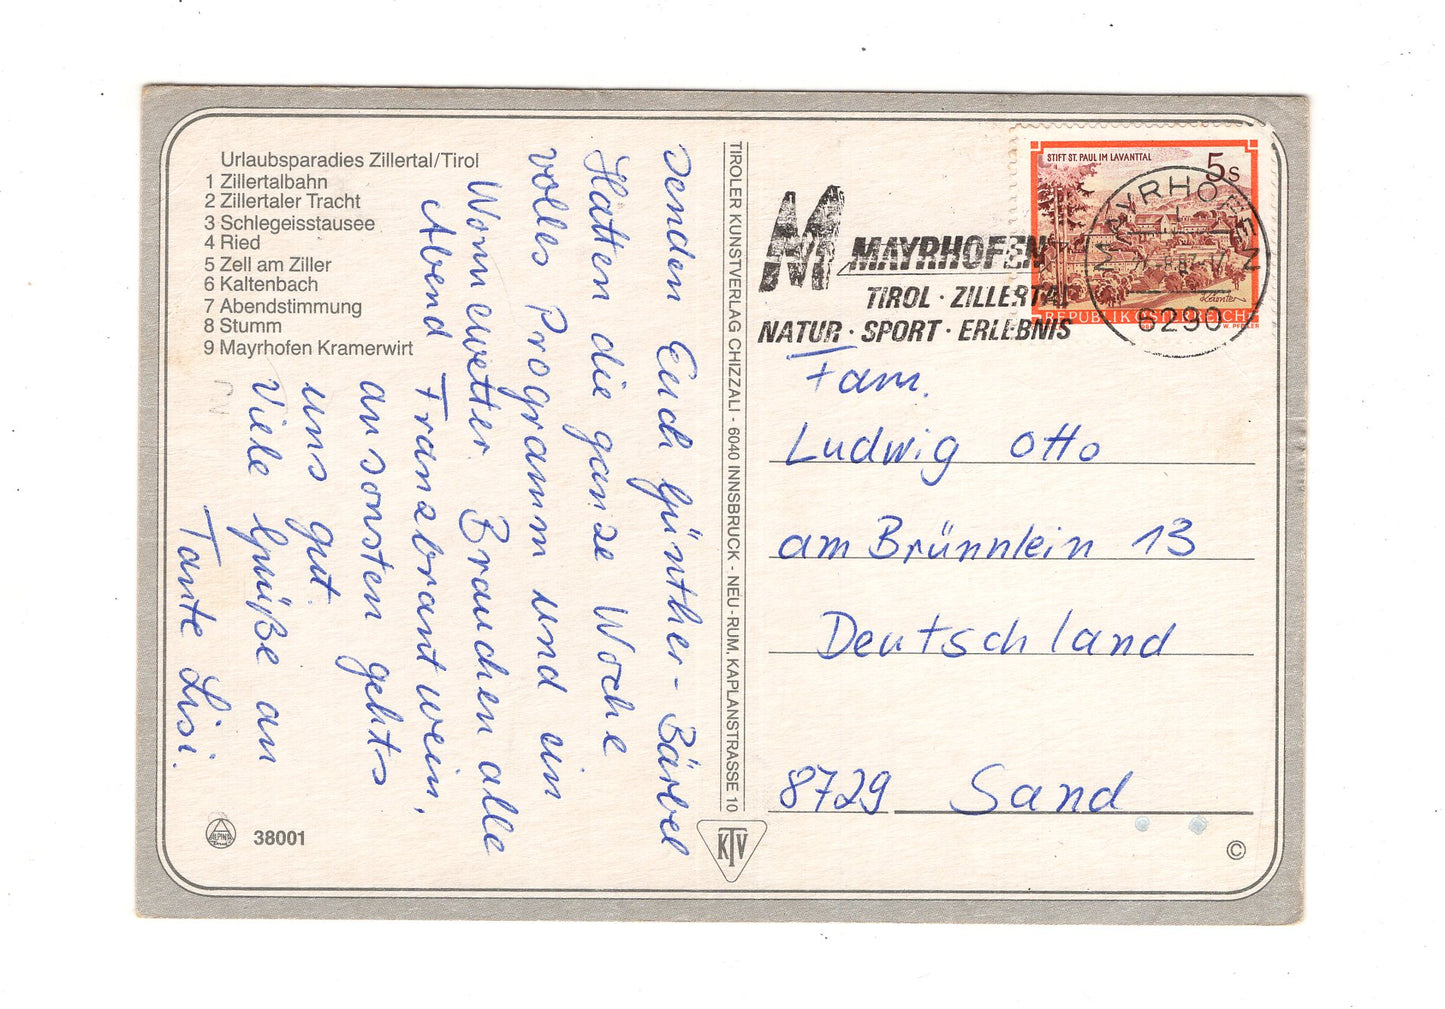 Urlaubsparadies Zillertal/Tirol
1 Zillertalbahn
2 Zillertaler Tracht
3 Schlegeisstausee
4 Ried
5 Zell am Ziller
6 Kaltenbach
7 Abendstimmung
8 Stumm
9 Mayrhofen Kramerwirt
Senden Euch Günther-Bärbel
Hatten die ganze Woche
volles Programm und ein
Wonnewetter. Brauchen alle
Abend Franzbrantwein,
ansonsten gehts
uns gut.
Viele Grüße an
Tante Lisi.
ALPINA
38001
TIROLER KUNSTVERLAG CHIZZALI - 6040 INNSBRUCK - NEU-RUM, KAPLANSTRASSE 10
KTV
M MAYRHOFEN
TIROL · ZILLERTAL
NATUR · SPORT · ERLEBNIS
STIFT ST. PAUL IM LAVANTTAL
5 S
REPUBLIK ÖSTERREICH
MAYRHOFEN
6290
Fam.
Ludwig Otto
am Brünnlein 13
Deutschland
8729 Sand
©